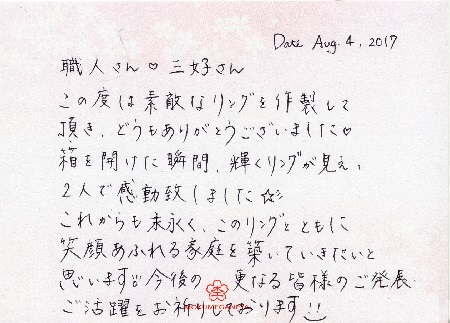 Date Aug. 4, 2017
職人さん♡三好さん
この度は素敵なリングを作製して
頂き、どうもありがとうございました♡
箱を開けた瞬間、輝くリングが見え、
2人で感動致しました☆彡
これからも末永く、このリングとともに
笑顔あふれる家庭を築いていきたいと
思います。今後の 更なる皆様のご発展
ご活躍をお祈りしております!!
MOKUMEGANEYA